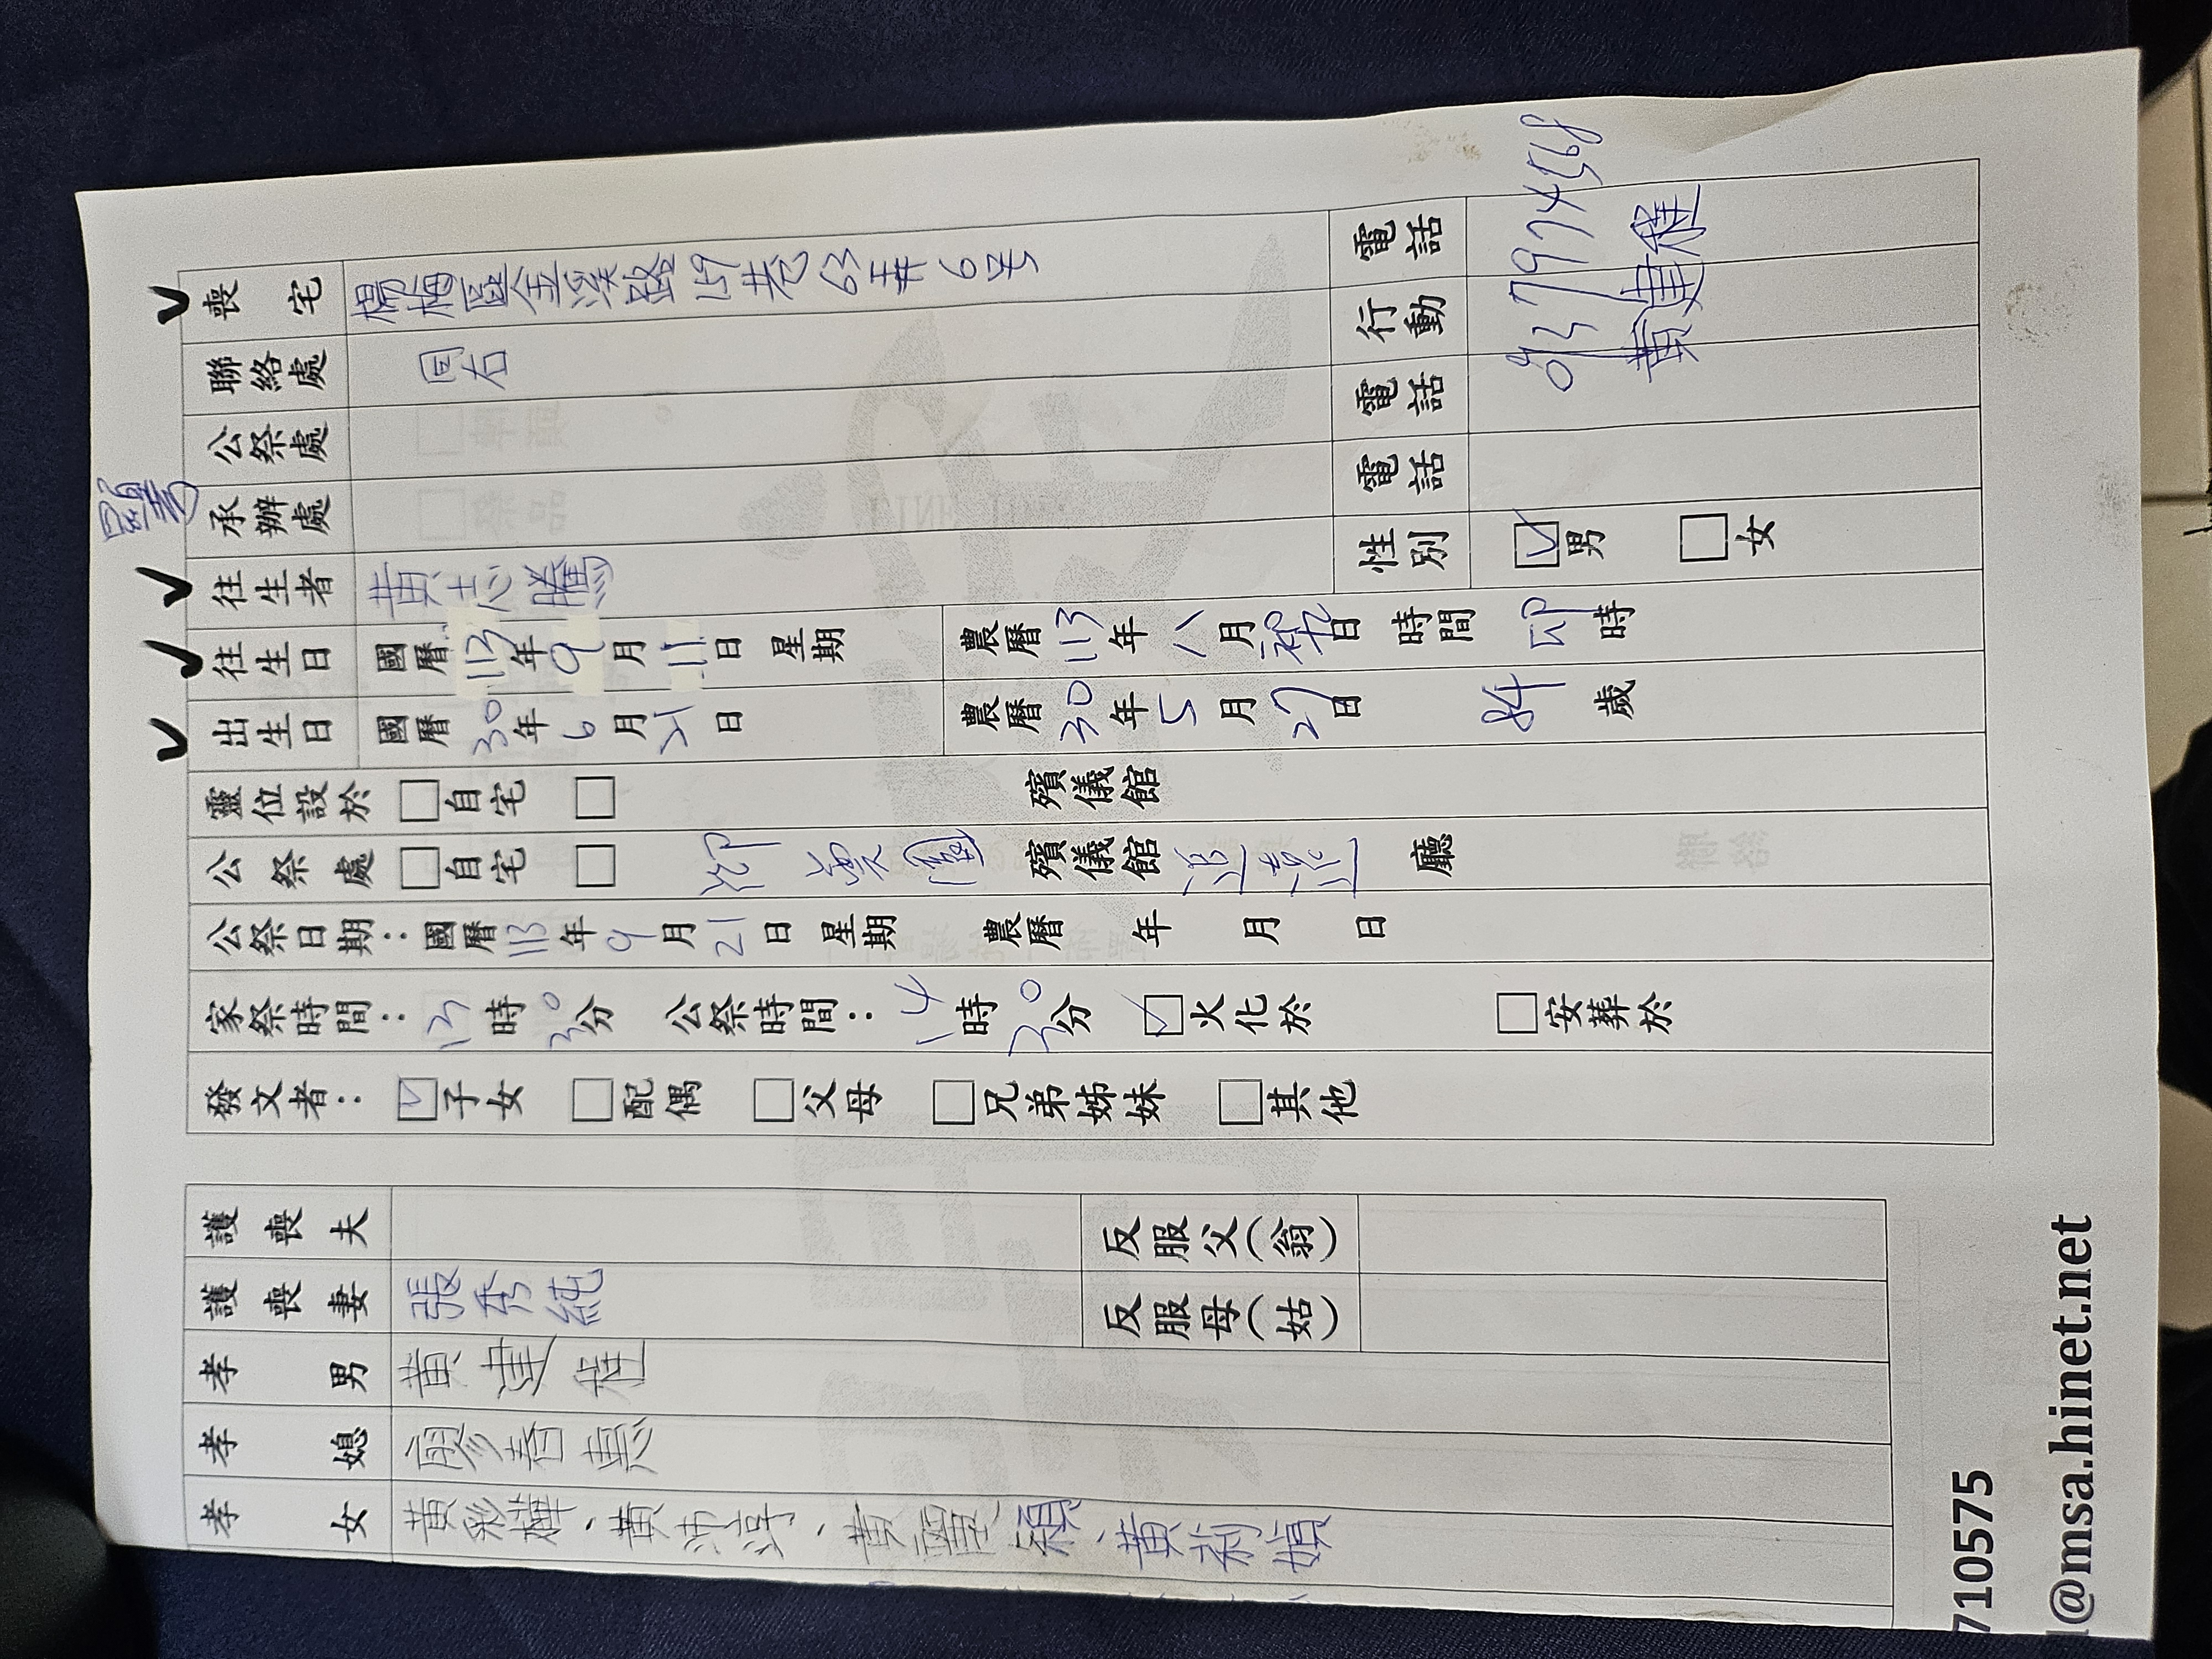 喪宅 楊梅區金溪路159巷63弄6号 電話
聯絡處 同右 行動
公祭處 電話
承辦處 電話
往生者 黃志騰 性別 ☑男 □女
往生日 國曆113年9月11日 星期 農曆113年八月初九日 時間 卯時
出生日 國曆30年6月21日 農曆30年5月27日 84歲
靈位設於 □自宅 □ 殯儀館
公祭處 □自宅 □ 殯儀館 追遠 廳
公祭日期：國曆113年9月21日 星期 農曆 年 月 日
家祭時間：13時30分 公祭時間：14時30分 ☑火化於 □安葬於
發文者：☑子女 □配偶 □父母 □兄弟姊妹 □其他
護喪夫 反服父(翁)
護喪妻 張秀純 反服母(姑)
孝男 黃建程
孝媳 廖春惠
孝女 黃彩樺、黃沛淳、黃靈穎、黃莉媜
黃建程
710575
@msa.hinet.net